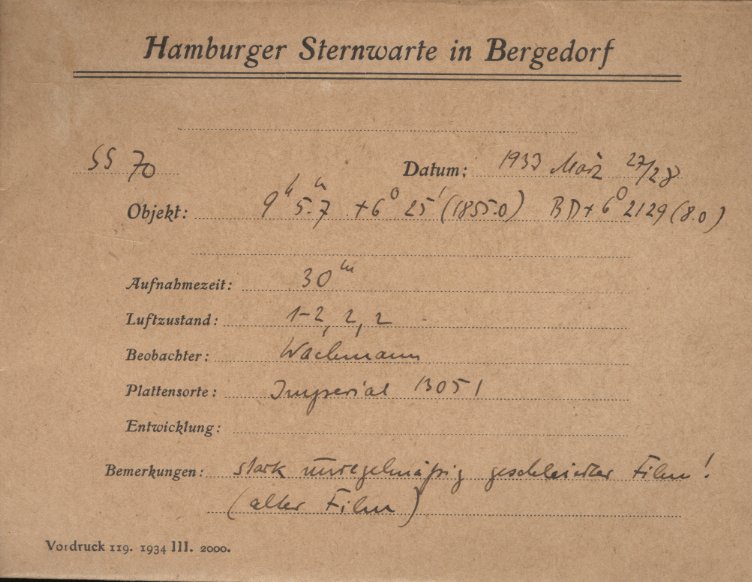 Hamburger Sternwarte in Bergedorf
SS 70
Datum: 1937 März 27/28
Objekt: 9ʰ 5.ᵐ7 +6⁰ 25' (1855.0) BD+6⁰ 2129 (8.0)
Aufnahmezeit: 30ᵐ
Luftzustand: 1-2, 2, 2
Beobachter: Wachmann
Plattensorte: Imperial 13051
Entwicklung:
Bemerkungen: stark unregelmäßig geschleierter Film!
(alter Film)
Vordruck 119. 1934 III. 2000.